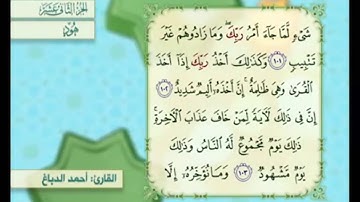 الجزء الثاني عشر
هود
شَىْءٍ لَّمَّا جَآءَ أَمْرُ رَبِّكَ ۖ وَمَا زَادُوهُمْ غَيْرَ
تَتْبِيبٍ ١٠١ وَكَذَٰلِكَ أَخْذُ رَبِّكَ إِذَآ أَخَذَ
ٱلْقُرَىٰ وَهِىَ ظَٰلِمَةٌ ۚ إِنَّ أَخْذَهُۥٓ أَلِيمٌ شَدِيدٌ ١٠٢
إِنَّ فِى ذَٰلِكَ لَءَايَةً لِّمَنْ خَافَ عَذَابَ ٱلْءَاخِرَةِ ۚ
ذَٰلِكَ يَوْمٌ مَّجْمُوعٌ لَّهُ ٱلنَّاسُ وَذَٰلِكَ
يَوْمٌ مَّشْهُودٌ ١٠٣ وَمَا نُؤَخِّرُهُۥٓ إِلَّا
القارئ: أحمد الدباغ